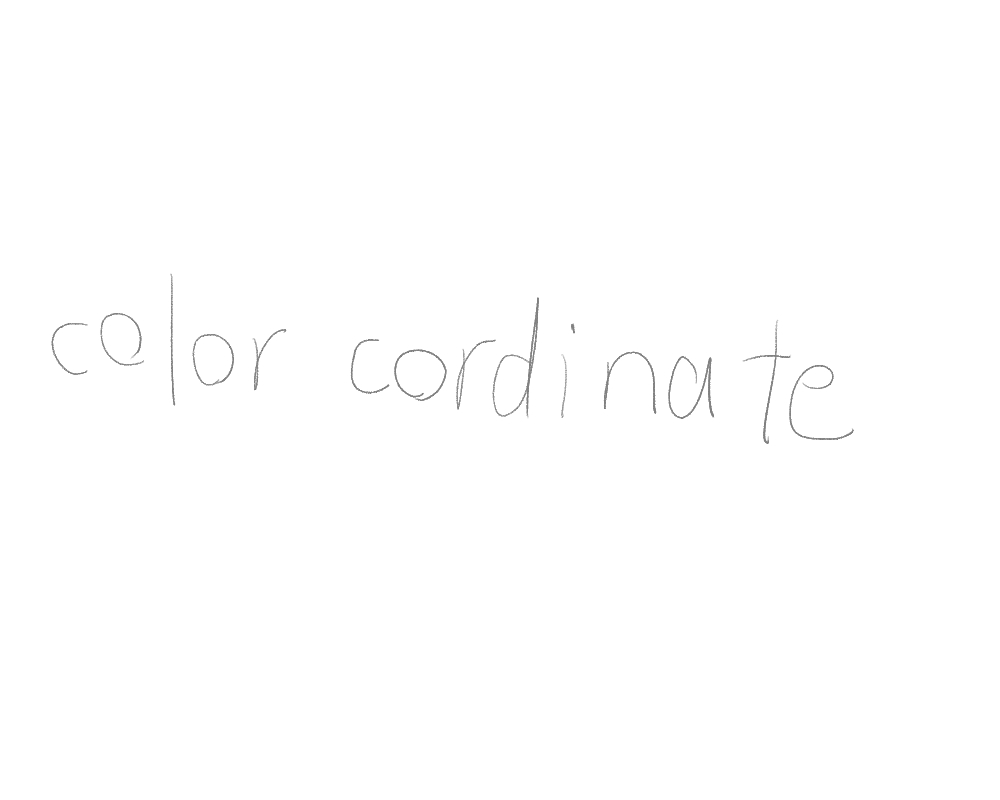 color cordinate